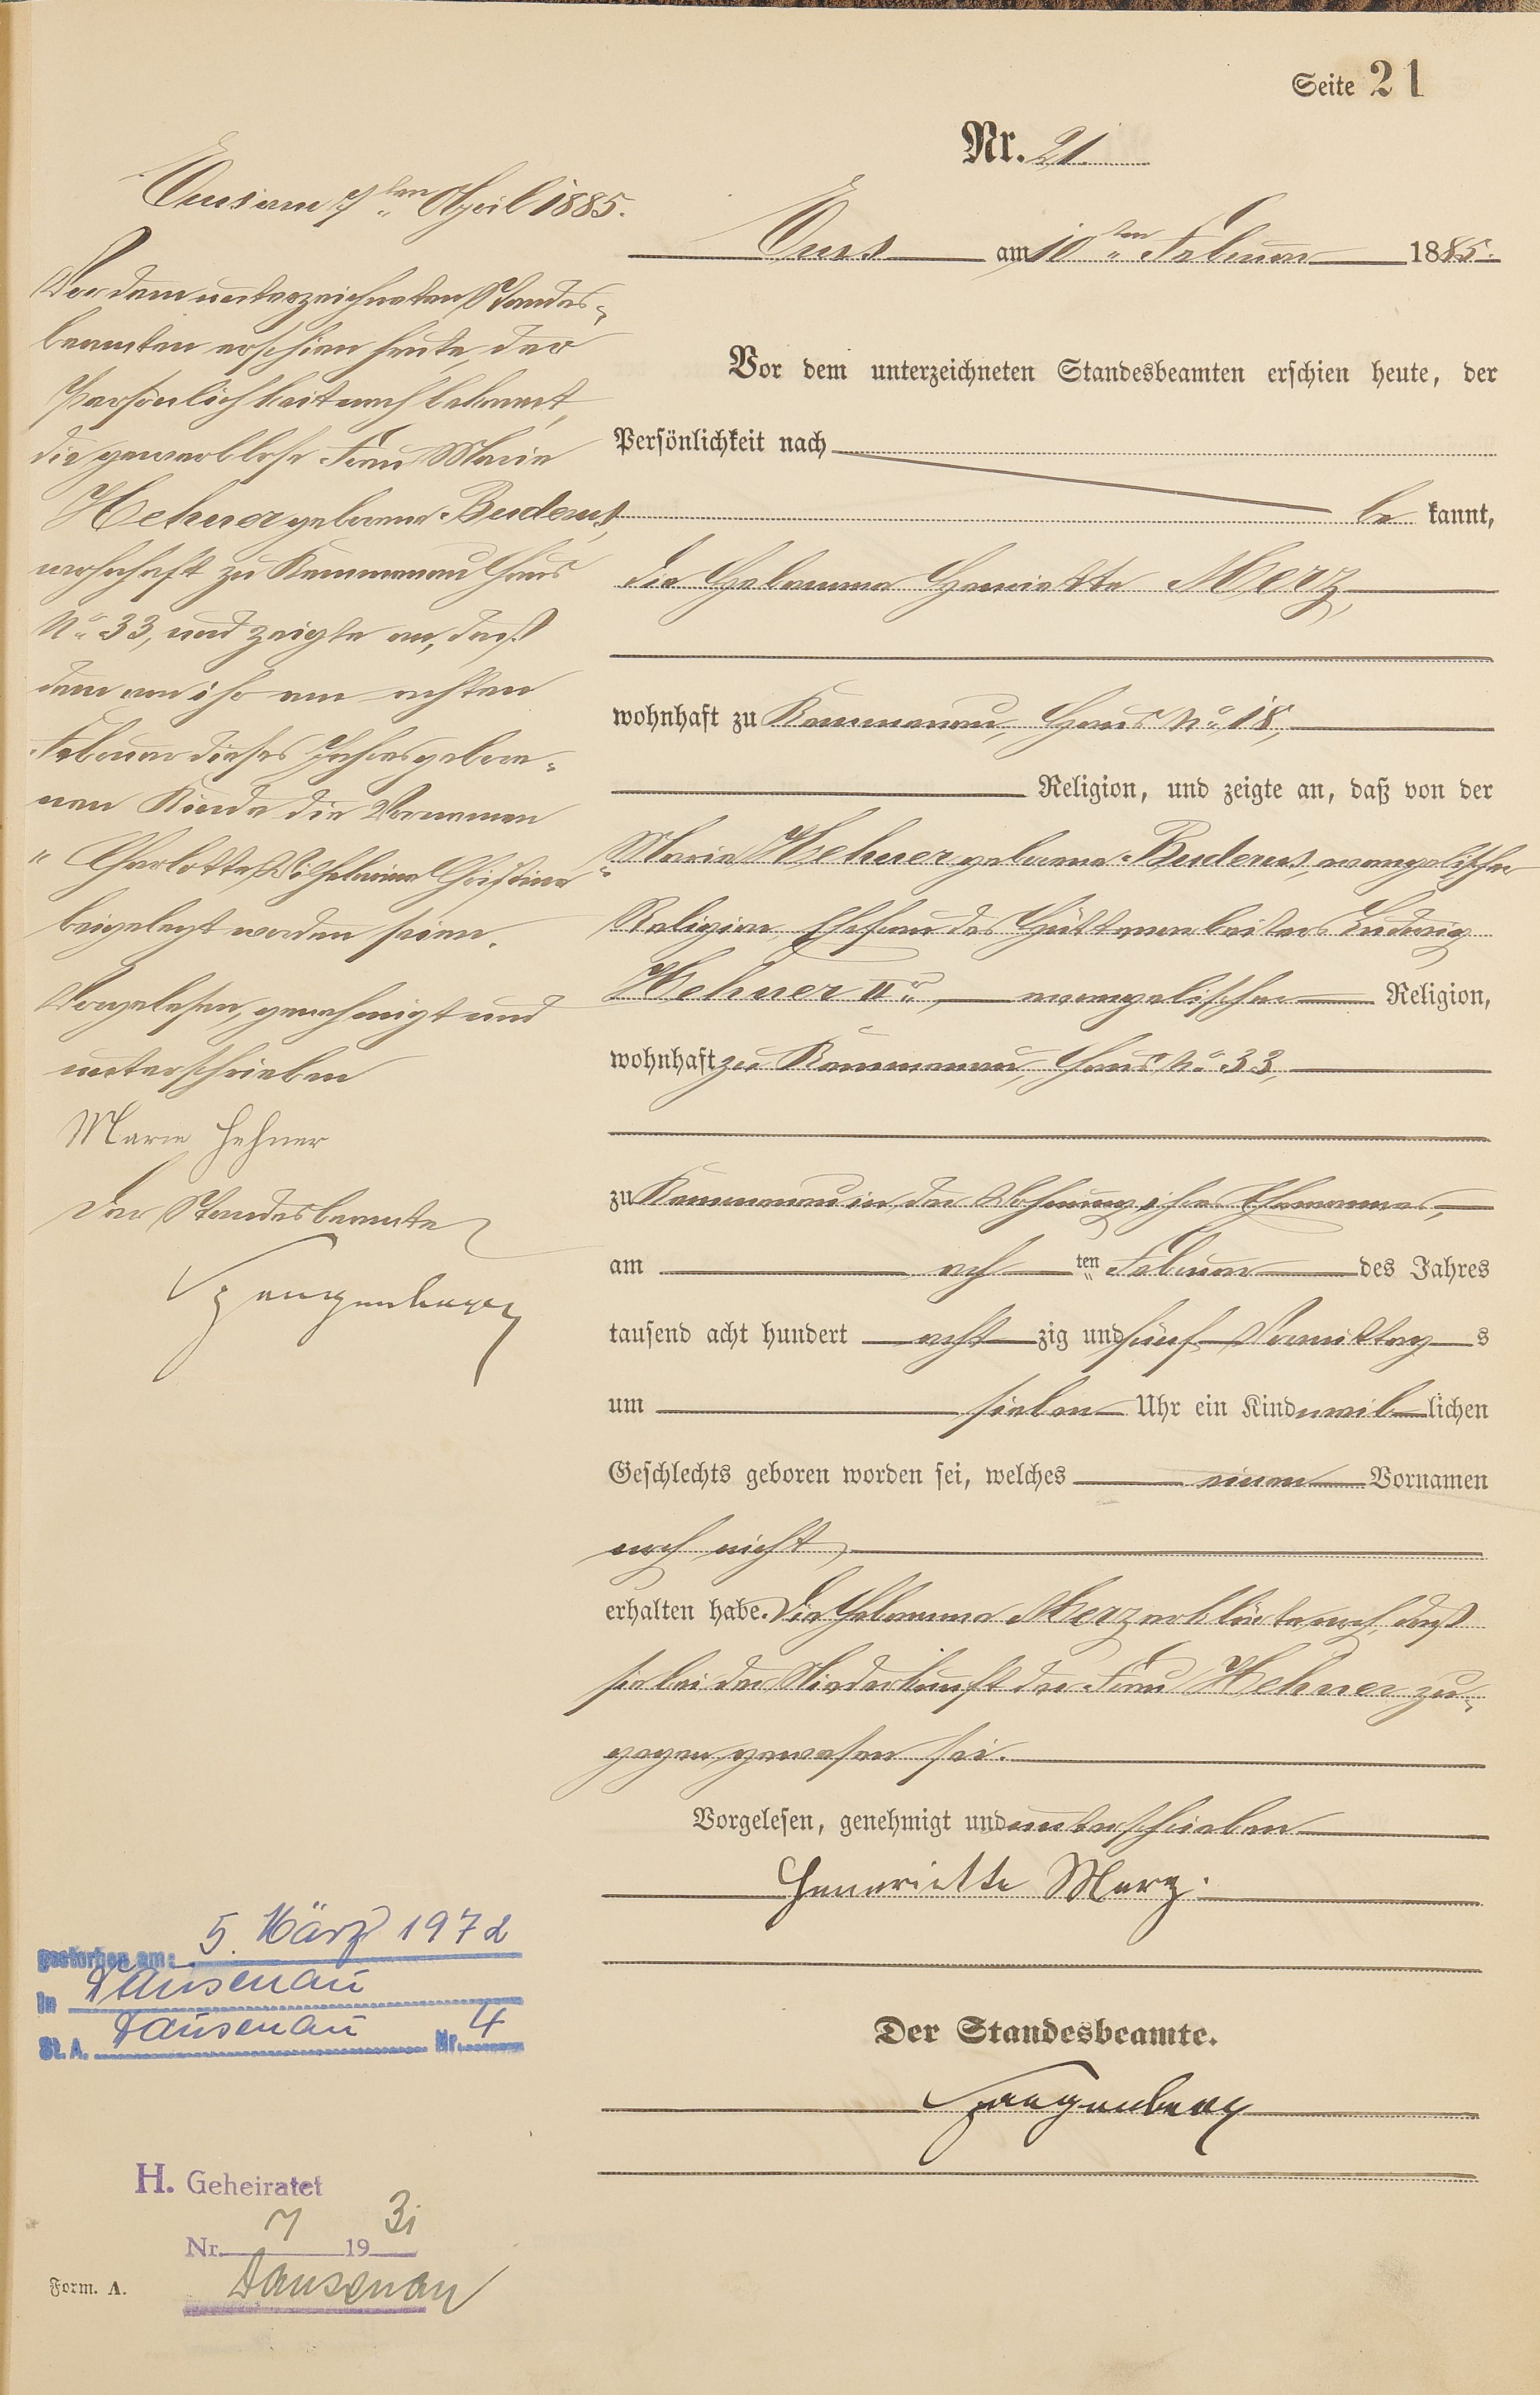 Seite 21
Nr. 21.
Ems am 10ten Februar 1885.
Vor dem unterzeichneten Standesbeamten erschien heute, der
Persönlichkeit nach
be kannt,
die Hebamme Henriette Merz,
wohnhaft zu Kemmenau, Haus No 18,
Religion, und zeigte an, daß von der
Marie Hehner geborene Buderus, evangelischer
Religion, Ehefrau des Hüttenarbeiters Ludwig
Hehner IIr, evangelischer Religion,
wohnhaft zu Kemmenau, Haus No 33,
zu Kemmenau in der Wohnung ihres Ehemannes,
am ach ten Februar des Jahres
tausend acht hundert acht zig und fünf Vormittag s
um sieben Uhr ein Kind weib lichen
Geschlechts geboren worden sei, welches einen Vornamen
noch nicht
erhalten habe. Die Hebamme Merz erklärte noch, daß
sie bei der Niederkunft der Frau Hehner zu-
gegen gewesen sei.
Vorgelesen, genehmigt und unterschrieben
Henriette Merz.
Der Standesbeamte.
Ems am 7ten April 1885.
Vor dem unterzeichneten Standes-
beamten erschien heute, der
Persönlichkeit nach bekannt,
die gewerblose Frau Marie
Hehner geborene Buderus,
wohnhaft zu Kemmenau Haus
No 33, und zeigte an, daß
dem von ihr am achten
Februar dieses Jahres gebore-
nen Kinde die Vornamen
"Charlotte Wilhelmine Christine"
beigelegt worden seien.
Vorgelesen, genehmigt und
unterschrieben
Marie Hehner
Der Standesbeamte
gestorben am: 5. März 1972
in Dausenau
St. A. Dausenau Nr. 4
H. Geheiratet
Nr. 7 19 31
Dausenau
Form. A.